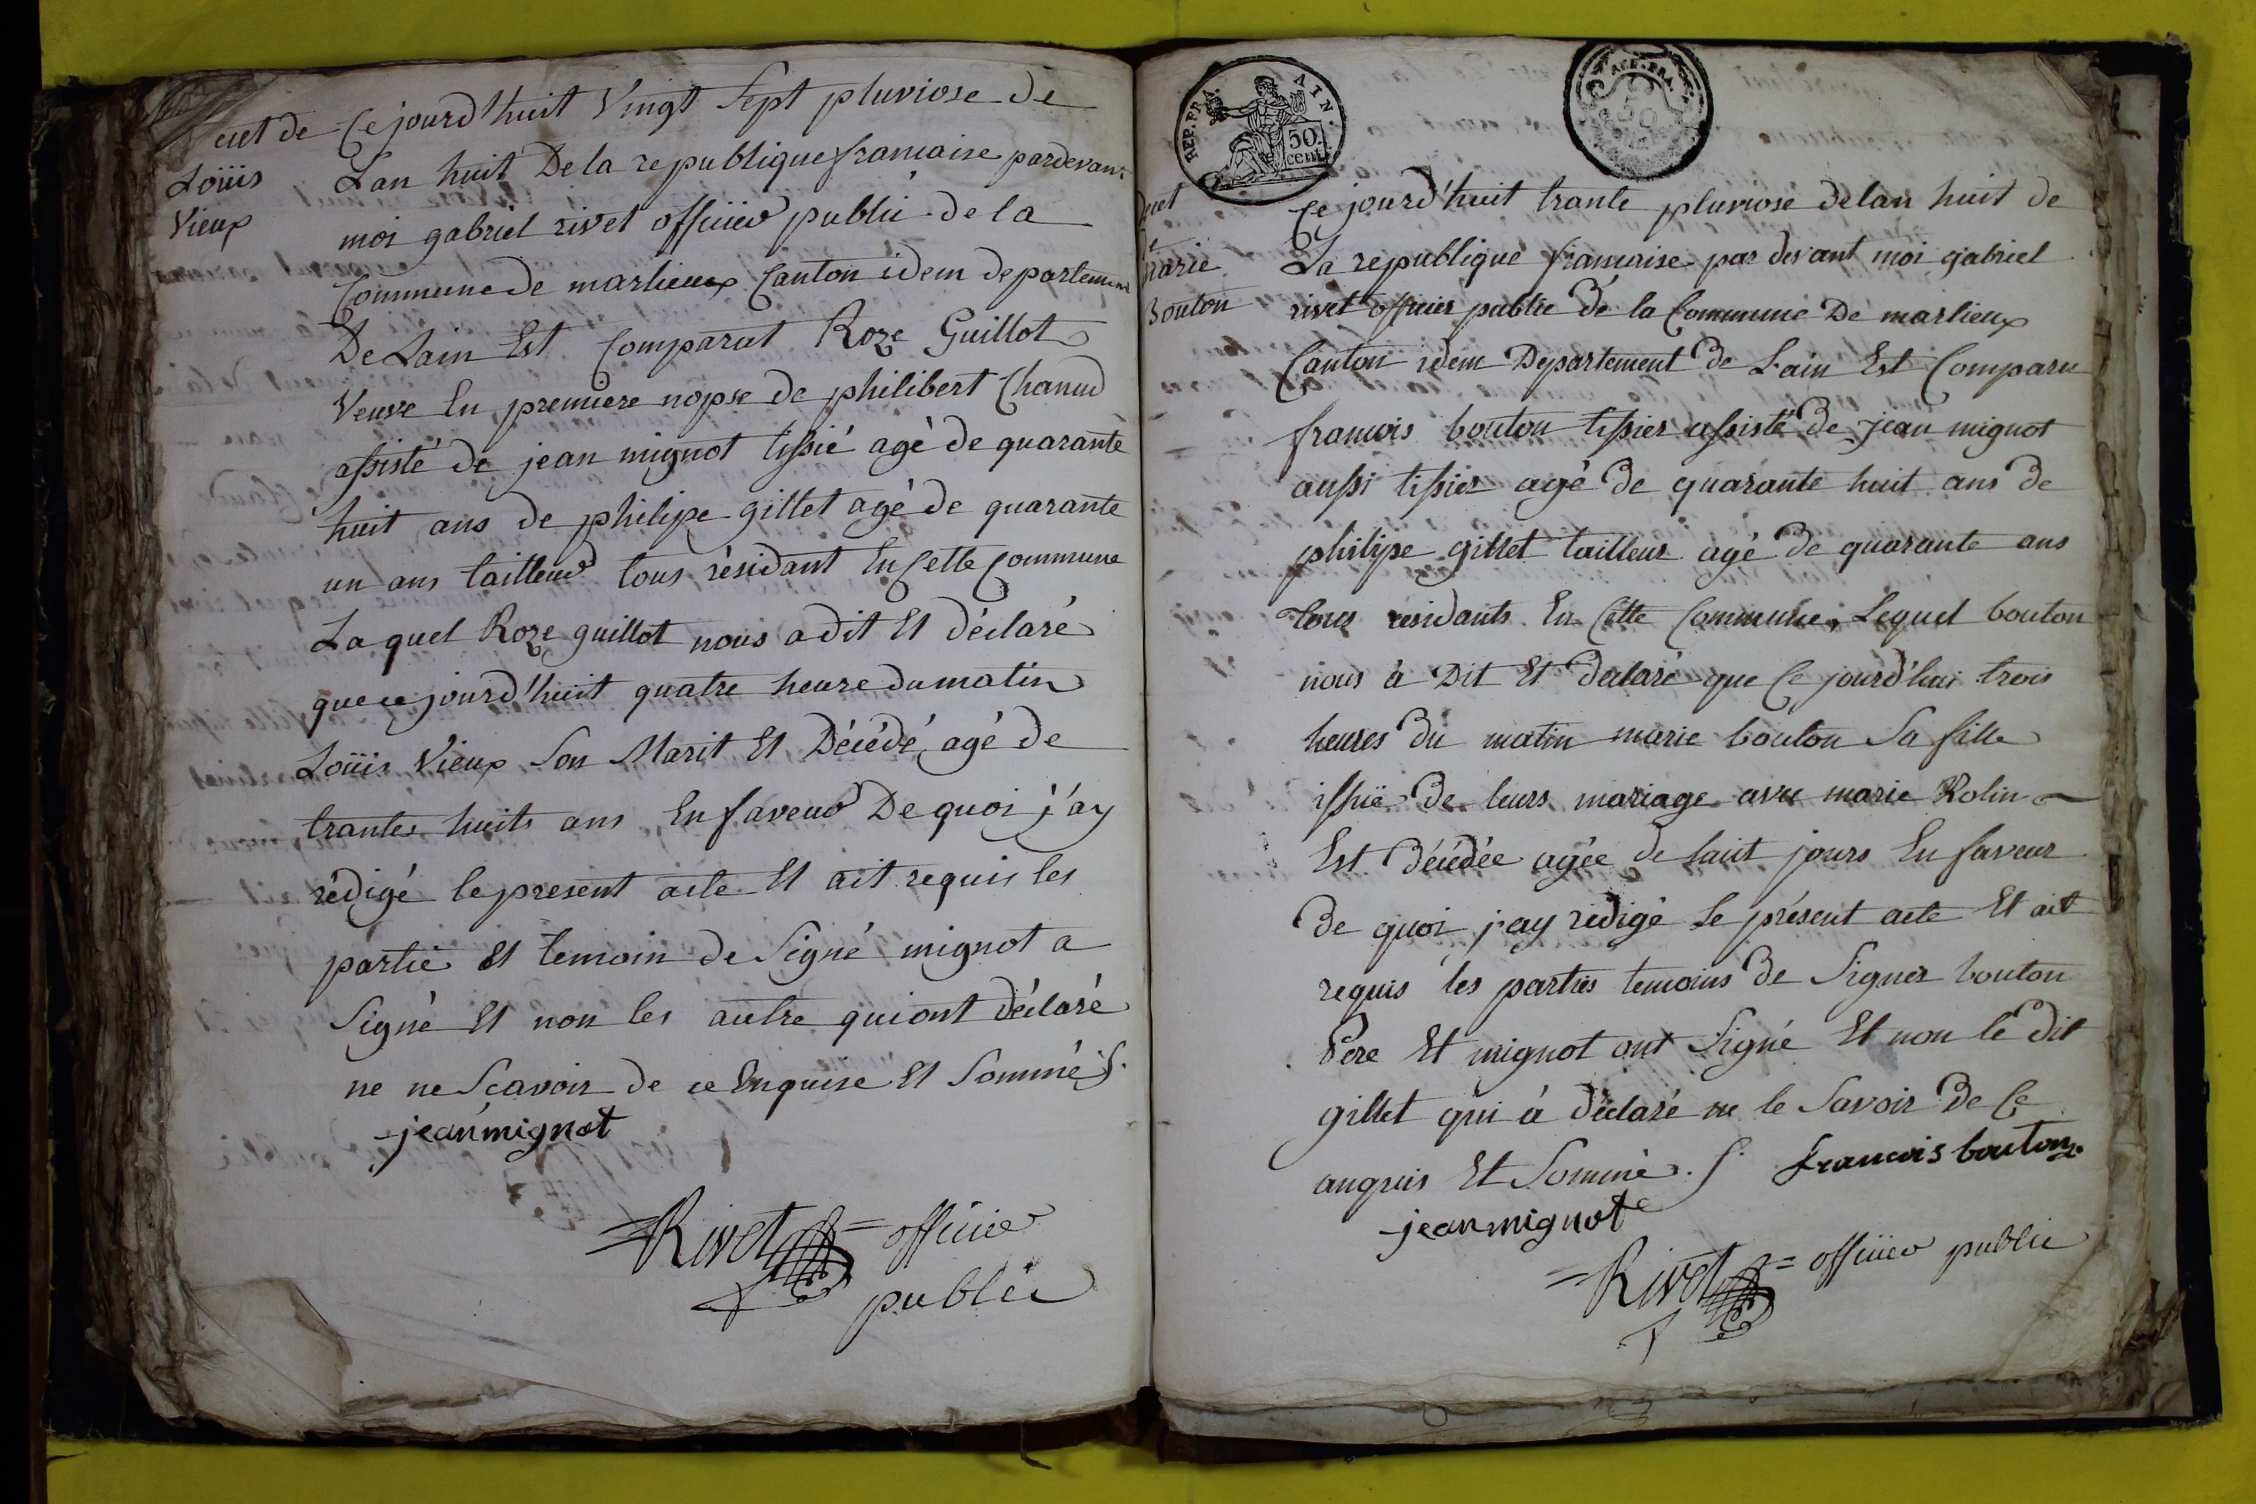 Ce jourd'huit Vingt Sept pluviose de
Lan huit De la republique francaise pardevant
moi gabriel rivet officier public de la
Commune de marlieux Canton idem departement
De Lain Est Comparut Roze Guillot
Veuve En premiere nopse de philibert Chanud
assisté de jean mignot tissié agé de quarante
huit ans de philipe gillet agé de quarante
un ans tailleur tous résidant En Cette Commune
Laquel Roze guillot nous a dit Et déclaré
que ce jourd'huit quatre heure du matin
Loüis Vieux Son Marit Et Décédé, agé de
trantes huits ans En faveur De quoi j'ay
rédigé le present acte Et ait requis les
partie Et temoin de Signé mignot a
Signé Et non les autre qui ont Déclaré
ne ne Scavoir de ce Enquise Et Sommé S.
jean mignot
Rivet officier
public
ecet de
Loüis
Vieux
REP. FRA. 50 cent.
50
Decet
de
Marie
Bouton
Ce jourd'huit trante pluviose de lan huit de
La republique francaise par devant moi gabriel
rivet officier public de la Commune De marlieux
Canton idem Departement de L'ain Est Comparu
francois bouton tissier assisté de jean mignot
aussi tissier agé de quarante huit ans de
philipe gillet tailleur agé de quarante ans
tous residants En Cette Commune, Lequel bouton
nous à Dit Et declaré que Ce jourd'hui trois
heures du matin marie bouton Sa fille
issüe de leurs mariage avec marie Rolin
Est décédée agée de huit jours En faveur
de quoi j'ay rédigé Le présent acte Et ait
requis les parties temoins de Signer bouton
Pere Et mignot ont Signé Et non le dit
gillet qui à déclaré ne le Savoir de Ce
anquis Et Sommé. S. francois bouton
jean mignot
Rivet officier public